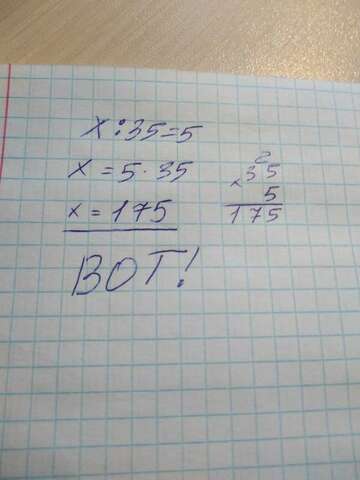 x:35=5
x=5·35
x=175
2
×35
5
175
ВОТ!